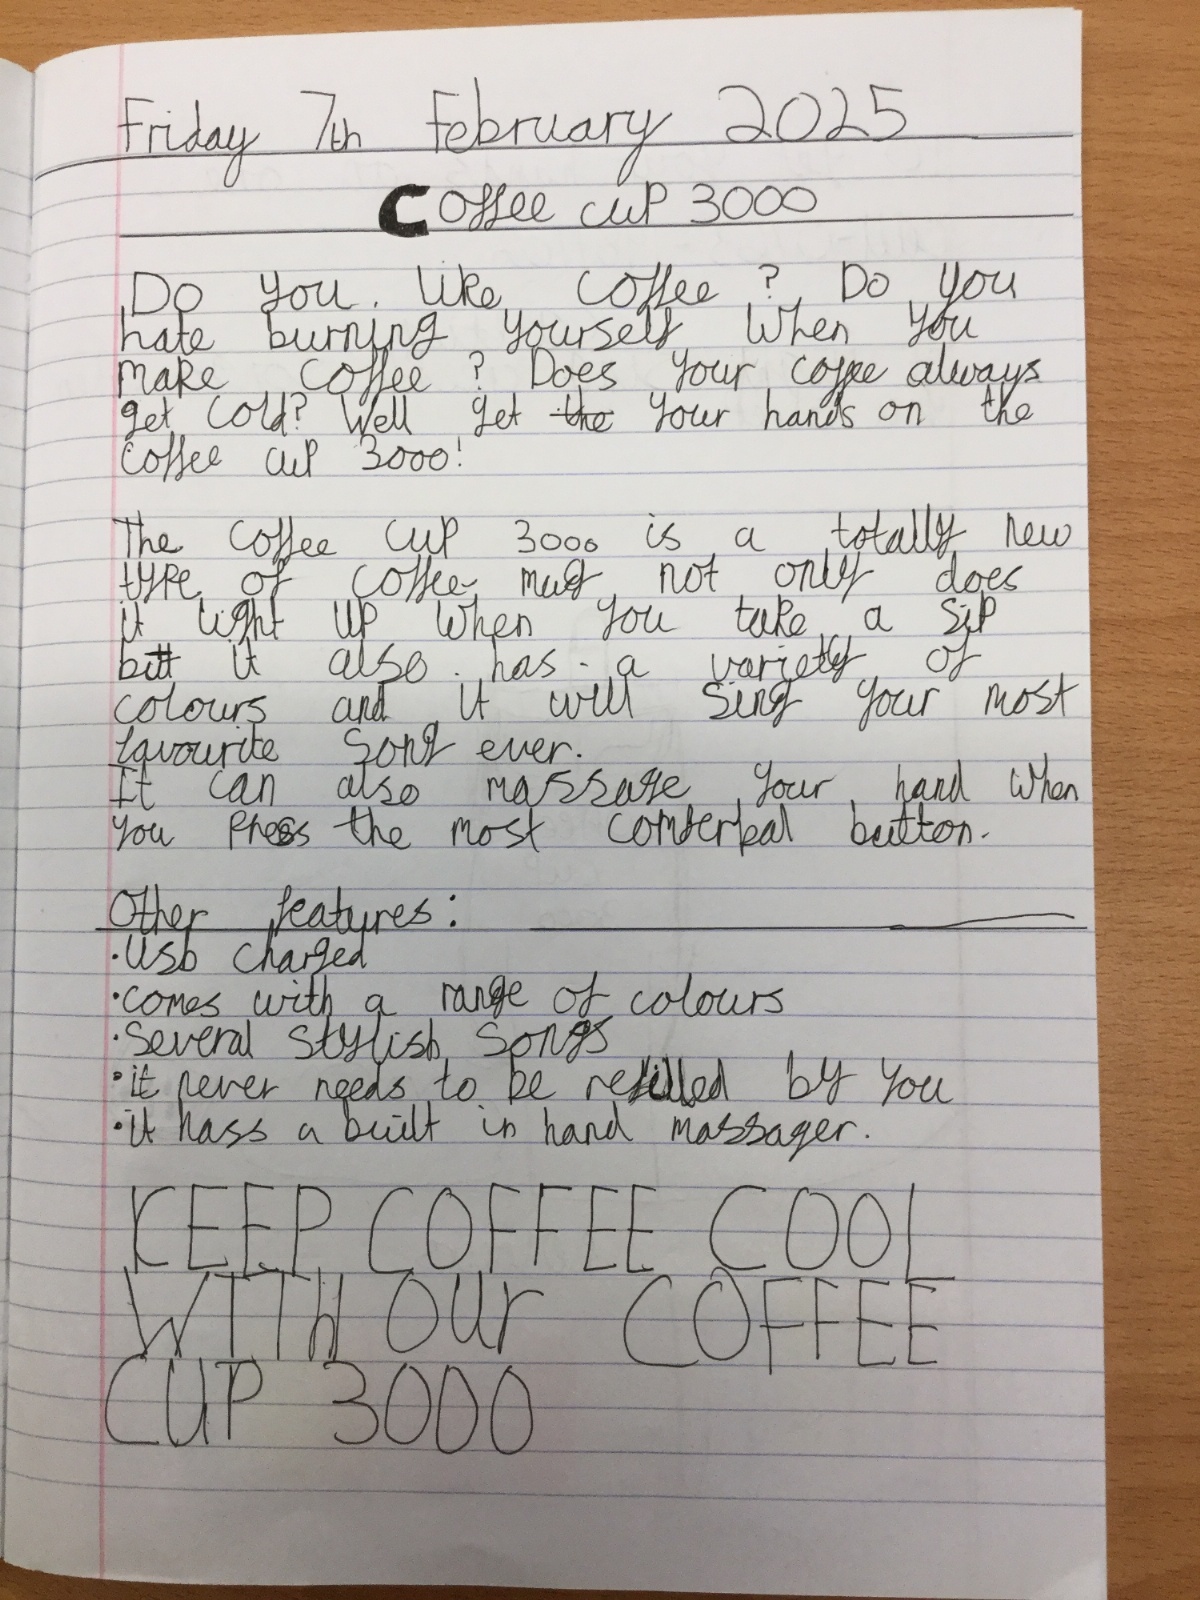 Friday 7th February 2025
Coffee cup 3000
Do you like coffee? Do you
hate burning yourself when you
make coffee? Does your coffee always
get cold? Well get the your hands on the
coffee cup 3000!
The coffee cup 3000 is a totally new
type of coffee mug not only does
it light up when you take a sip
but it also has a variety of
colours and it will sing your most
favourite song ever.
It can also massage your hand when
you press the most button.
Other features:
· Usb charged
· comes with a range of colours
· Several stylish songs
· it never needs to be refilled by you
· it hass a built in hand massager.
KEEP COFFEE COOL
WITH our COFFEE
CUP 3000